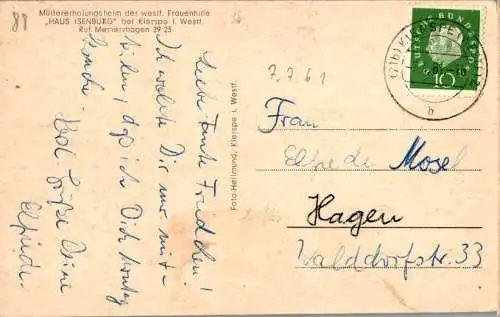 88
Müttererholungsheim der westf. Frauenhilfe
„HAUS ISENBURG" bei Kierspe i. Westf.
Ruf Meinerzhagen 29 25
Liebe Tante Friedchen!
Ich wollte Dir nur mit-
teilen, daß ich Dich Montag
Grüße Deine
Elfriede.
Foto-Hellmund, Kierspe i. Westf.
7.7.61
DEUTSCHE BUNDESPOST
10
KIERSPE
b
Frau
Elfriede Mosel
Hagen
Walddorfstr. 33